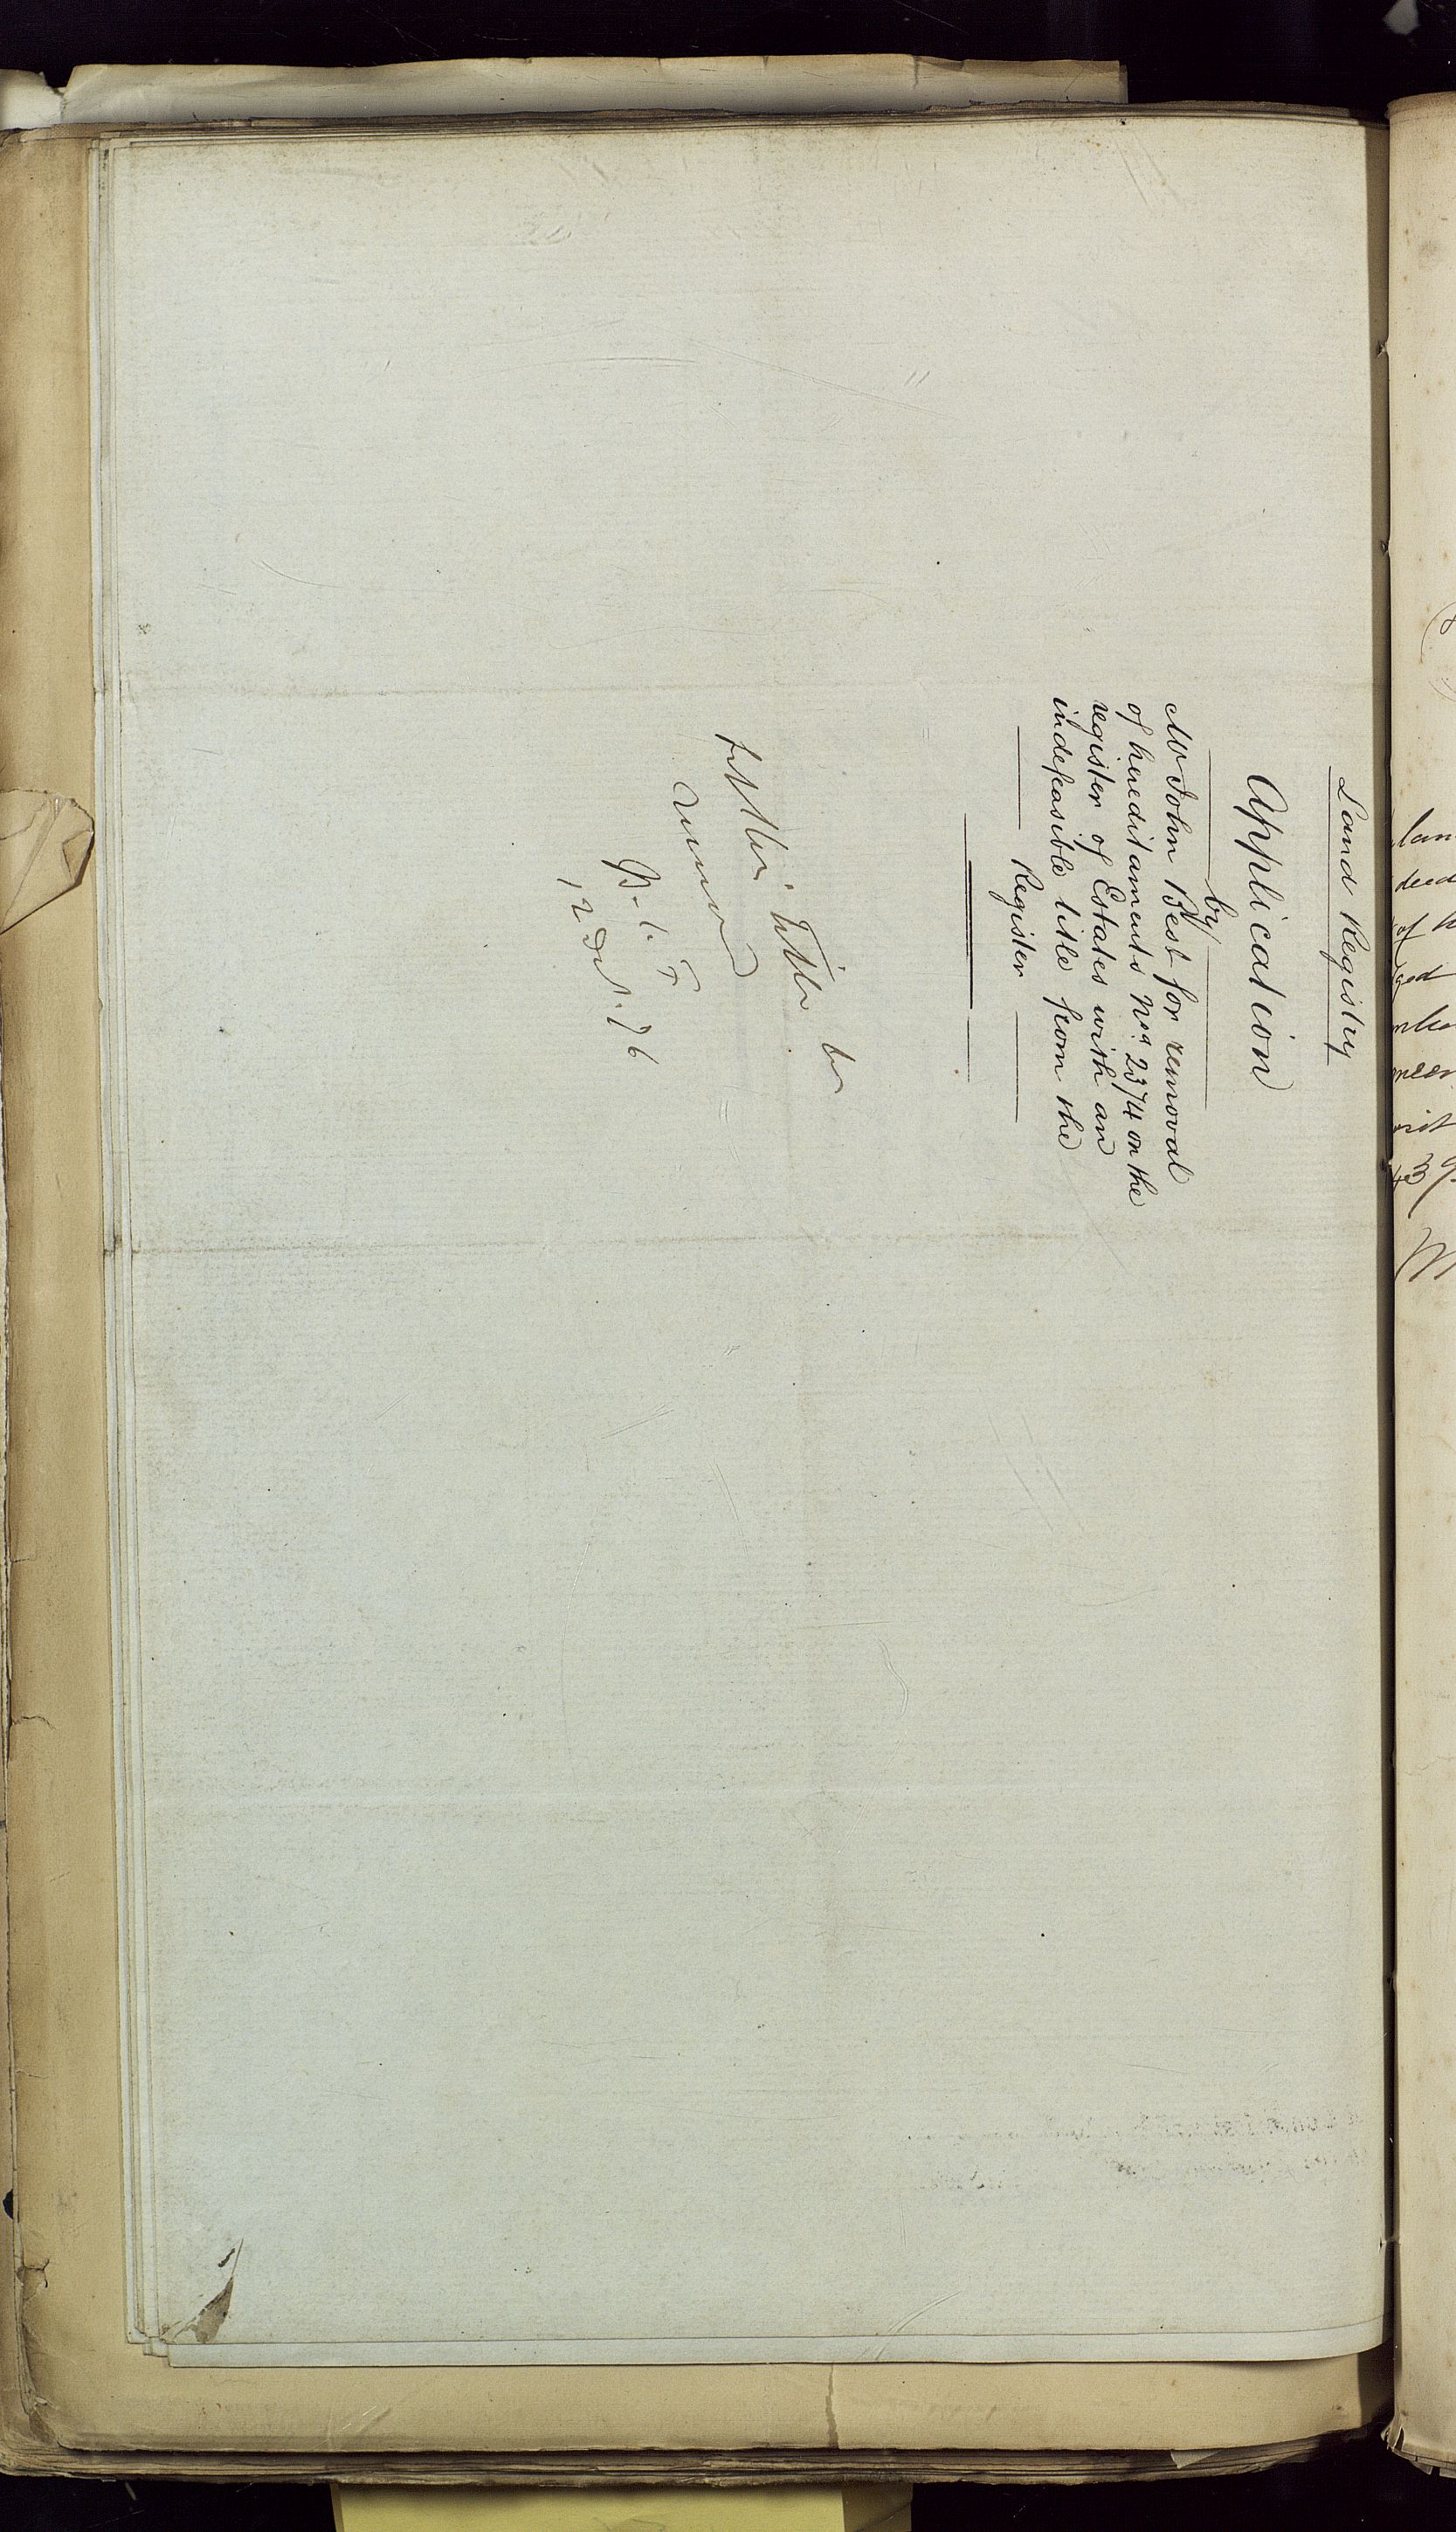 Land Registry
Application
by
Mr John Best for removal
of hereditaments Nos. 2374 on the
register of Estates with an
indefeasible title from the
Register
Title be
removed
12 Oct. 76
lan
deed
of
ged
43